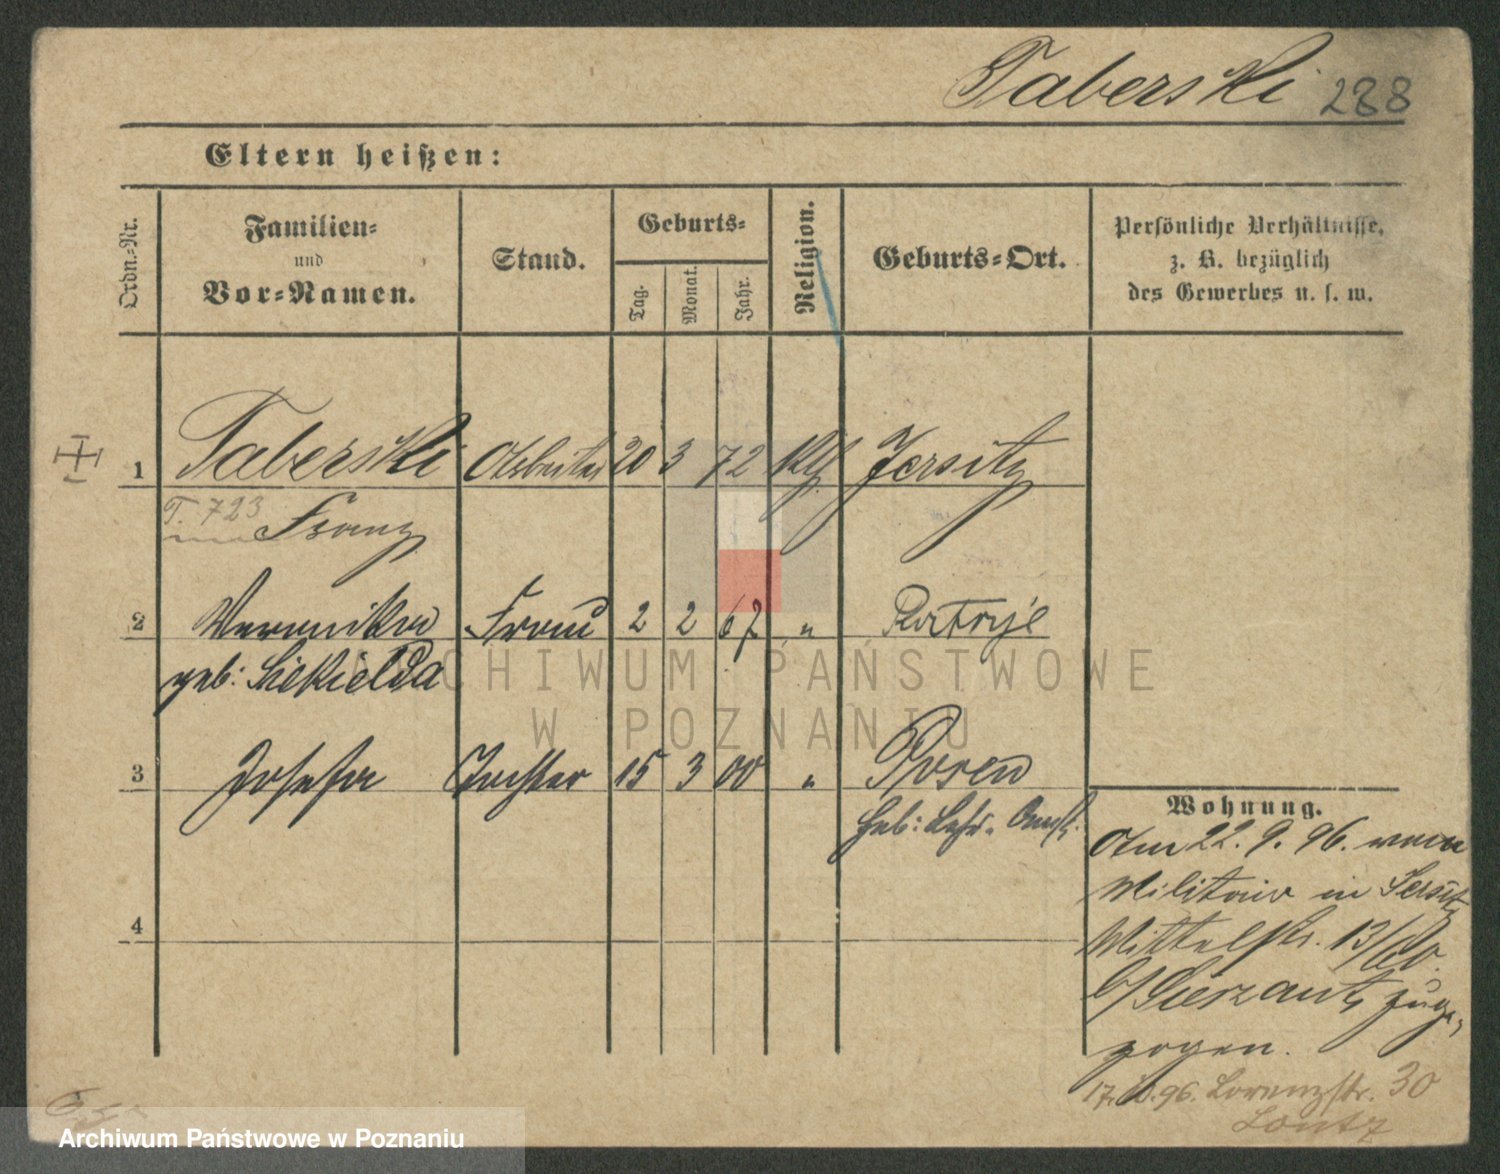 Taberski 288
Eltern heißen:
Ordn.-Nr.
Familien-
und
Vor-Namen.
Stand.
Geburts-
Tag.
Monat.
Jahr.
Religion.
Geburts-Ort.
Persönliche Verhältnisse,
z. B. bezüglich
des Gewerbes u. s. w.
1 Taberski Arbeiter 20 3 72 Kth Jersitz
T. 723 Franz
2 Veronika Frau 2 2 67 "
geb: Siekielda
3 Josefa Tochter 15 3 00 " Posen
geb:
4
Wohnung.
Am 22. 9. 96. vom
Militair in Jersitz
Mittelstr. 13/
zuge-
zogen.
17. 96. Lorenzstr. 30
ARCHIWUM PAŃSTWOWE
W POZNANIU
Archiwum Państwowe w Poznaniu